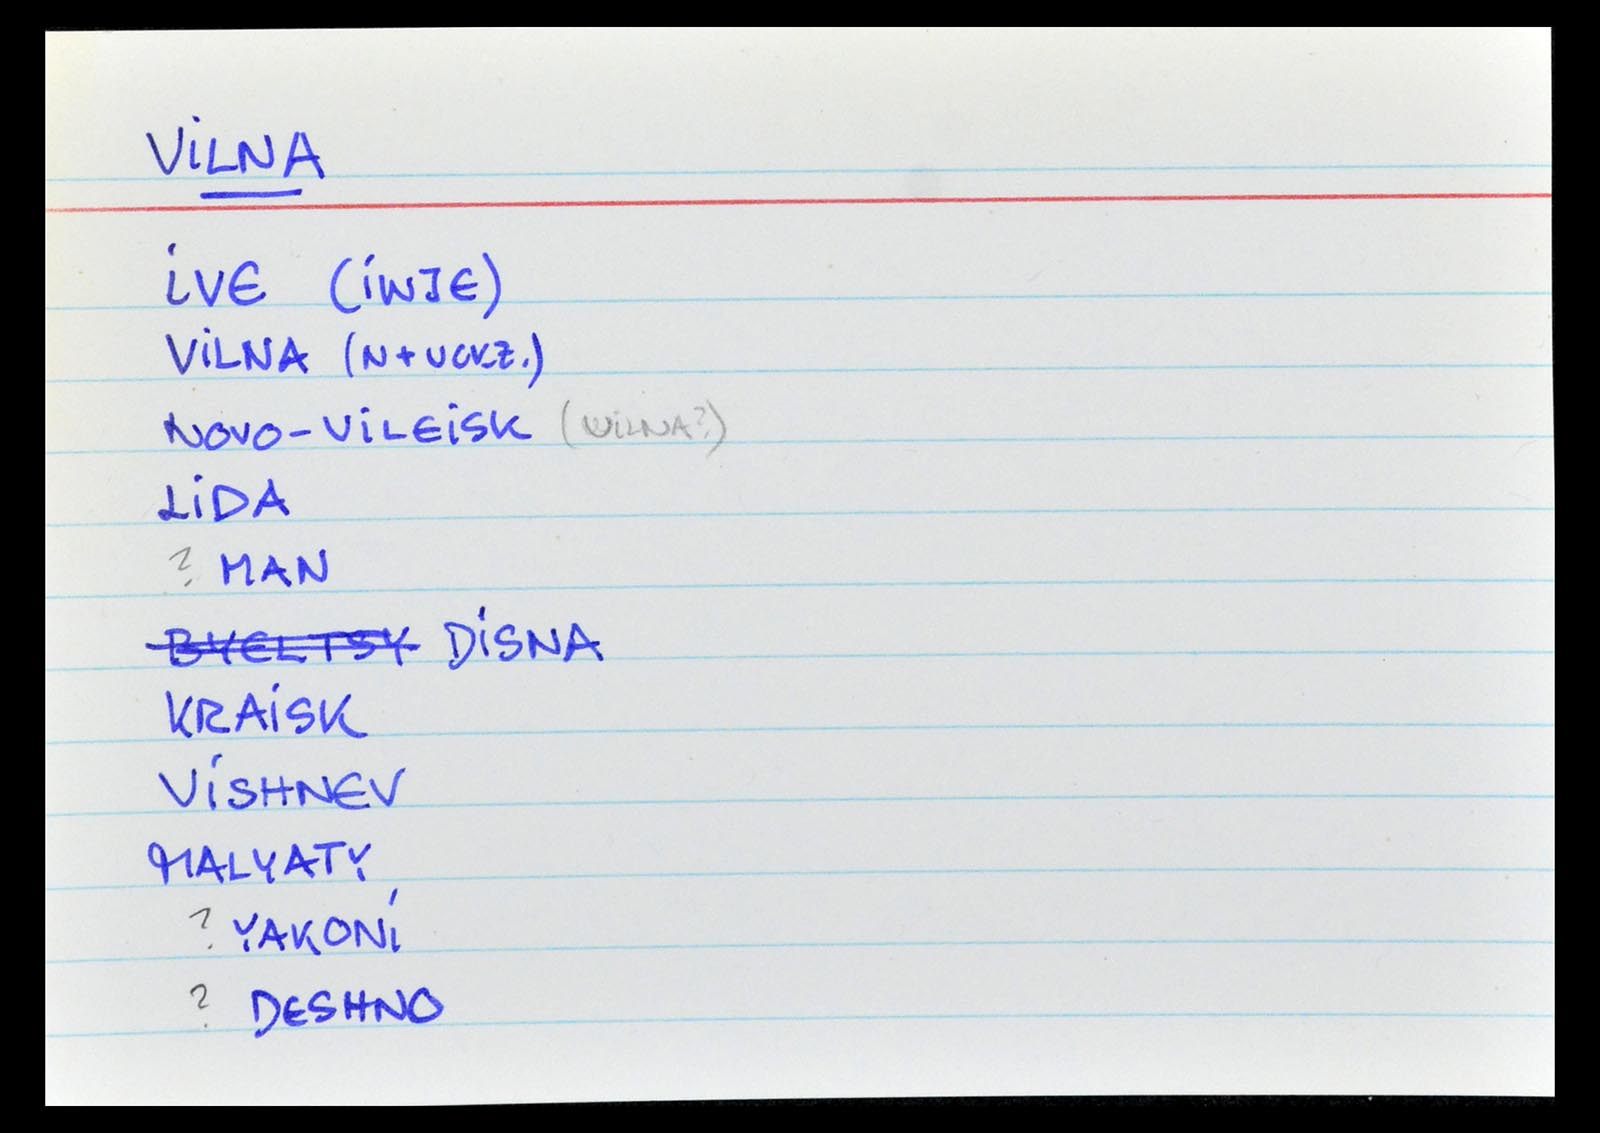 ViLNA
iVE (iWJE)
ViLNA (N+UCKZ.)
NOVO-ViLEiSK (WiLNA?)
LiDA
? MAN
BYELTSY DiSNA
KRAiSK
ViSHNEV
MALYATY
? YAKONi
? DESHNO